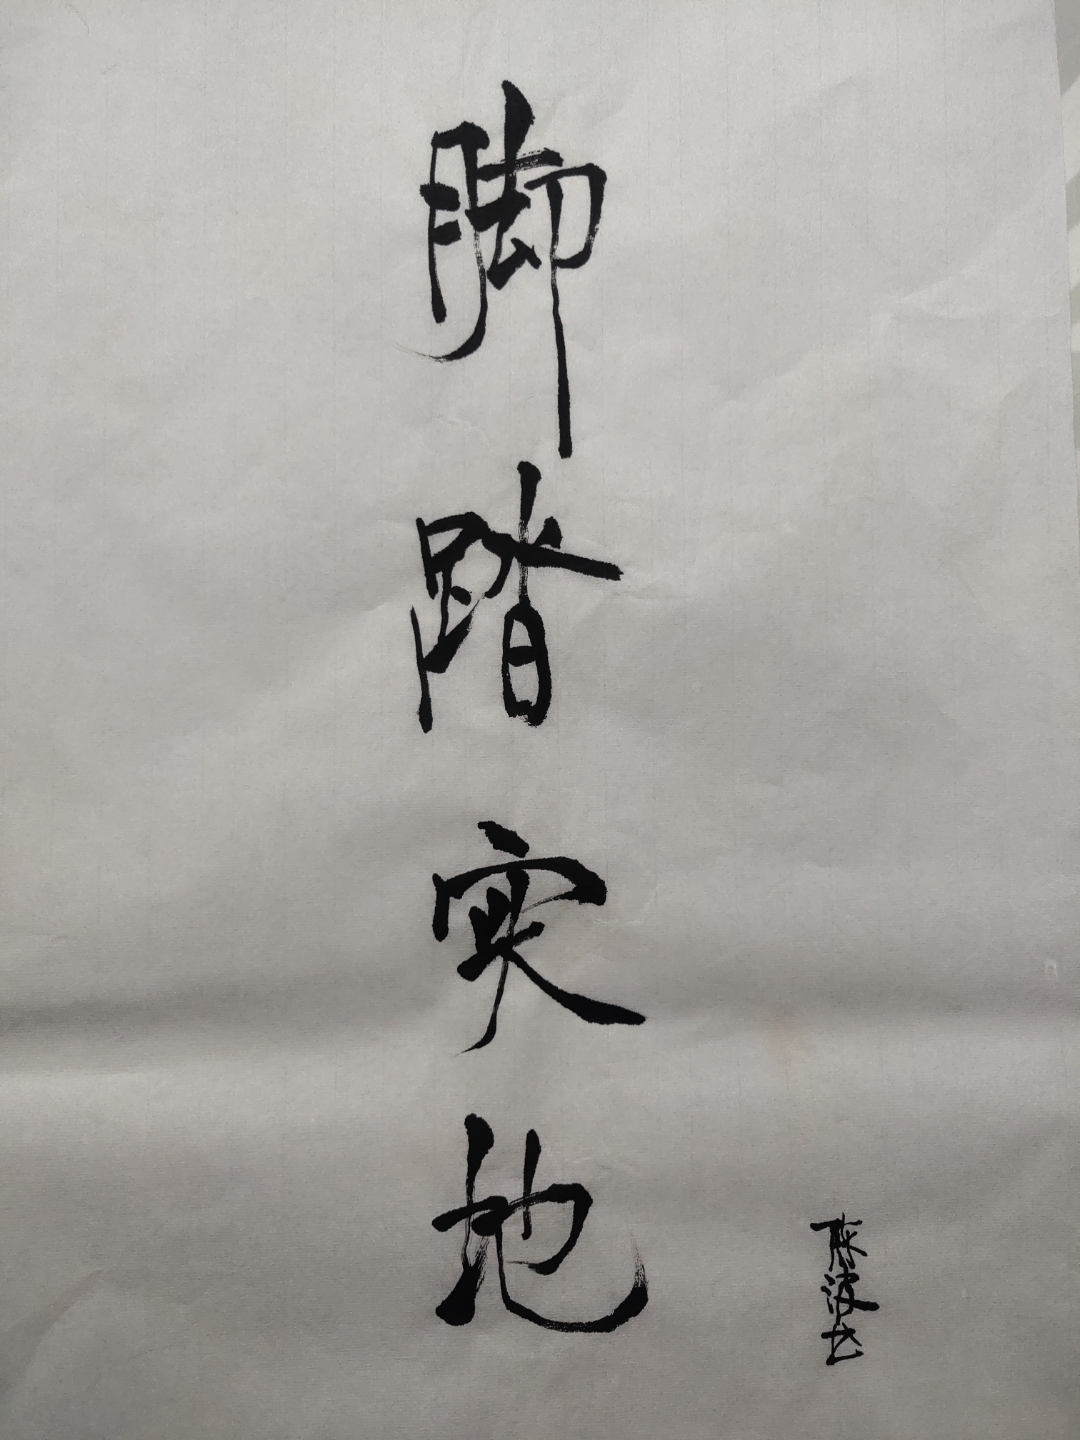 脚踏实地
陈波书